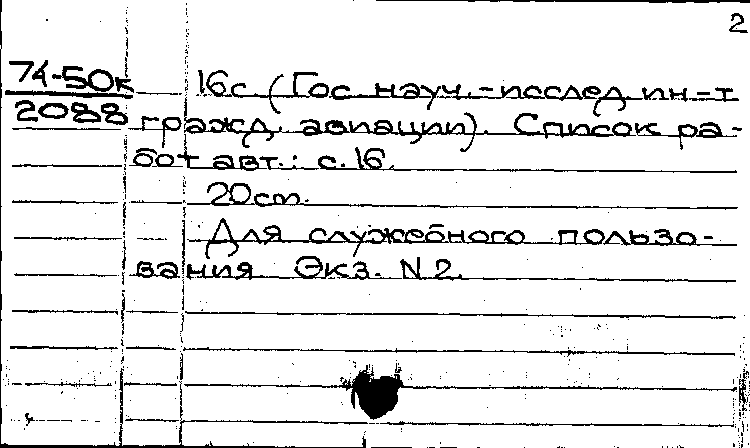 2
74-50к
2088
16с (Гос. науч.-исслед. ин-т
гражд. авиации). Список ра-
бот авт.: с. 16.
20см.
Для служебного пользо-
вания Экз. N 2.